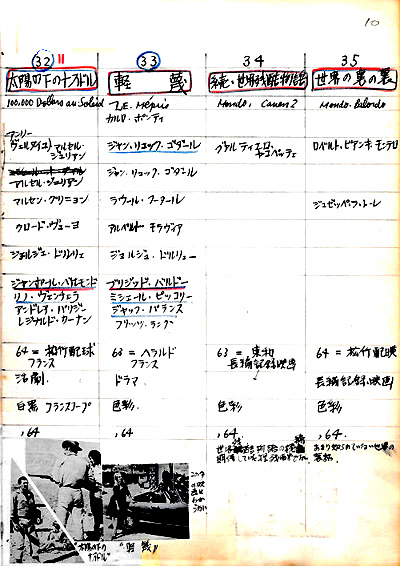 10
32 11
太陽の下の十万ドル
100,000 Dollars au Soleil
アンリー
ヴェルヌイユ) マルセル・
ジュリアン
マルセル・ジュリアン
マルセン・グリニョン
クロード・ヴューヨ
ジョルジュ・ドルリュ
ジャンポール・ベルモンド
リノ・ヴェンチュラ
アンドレオ・パリジー
レジナルド・カーナン
64 = 松竹配球
フランス
活劇
白黒 フランスコープ
,64
33
軽蔑
Le Mépris
カルロ・ポンティ
ジャン・リュック・ゴダール
ジャン・リュック・ゴダール
ラウール・クタール
アルベルト モラヴィア
ジョルジュ・ドルリュー
ブリジッド・バルドー
ミシェール・ピッコリー
ジャック・パランス
フリッツ・ラング
63 = ヘラルド
フランス
ドラマ
色彩
,64
34
続・世界残酷物語
Mondo, Canen 2
グァルティエロ・
ヤコペッティ
63 = 東和
長編記録映画
色彩
,64
35
世界の裏の裏
Mondo. Balordo
ロベルト・ビアンキ・モンテロ
ジュゼッペ・ラ・トーレ
64 = 松竹配映
長編記録映画
色彩
,64.
あまり知られていない世界の
太陽の下の
十万ドル
"軽蔑"